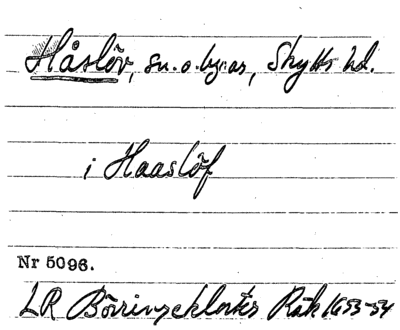 Håslöv, sn. o. by:ar, Skytts hd.
i Haaslöf
Nr 5096.
LR Börringekloster Räk 1653-54